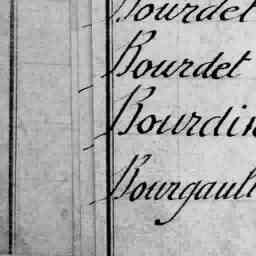 Bourdet
Bourdet
Bourdin
Bourgault